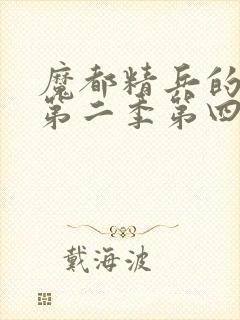 魔都精兵的
第二季第四
戴海波